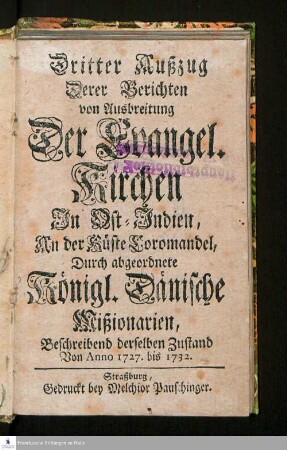 Dritter Außzug
Derer Berichten
von Ausbreitung
Der Evangel.
Kirchen
In Ost-Indien,
An der Küste Coromandel,
Durch abgeordnete
Königl. Dänische
Mißionarien,
Beschreibend derselben Zustand
Von Anno 1727. bis 1732.
Straßburg,
Gedruckt bey Melchior Pauschinger.
Franckesche Stiftungen zu Halle